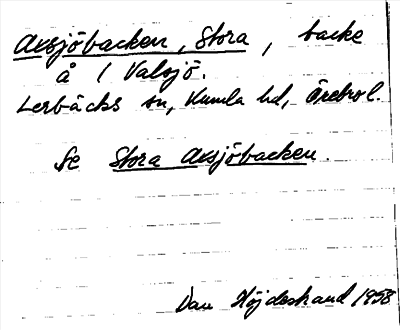 Avsjöbacken, Stora, backe
å 1 Valsjö.
Lerbäcks sn, Kumla hd, Örebro l.
Se Stora Avsjöbacken.
Dan Höjdestrand 1958